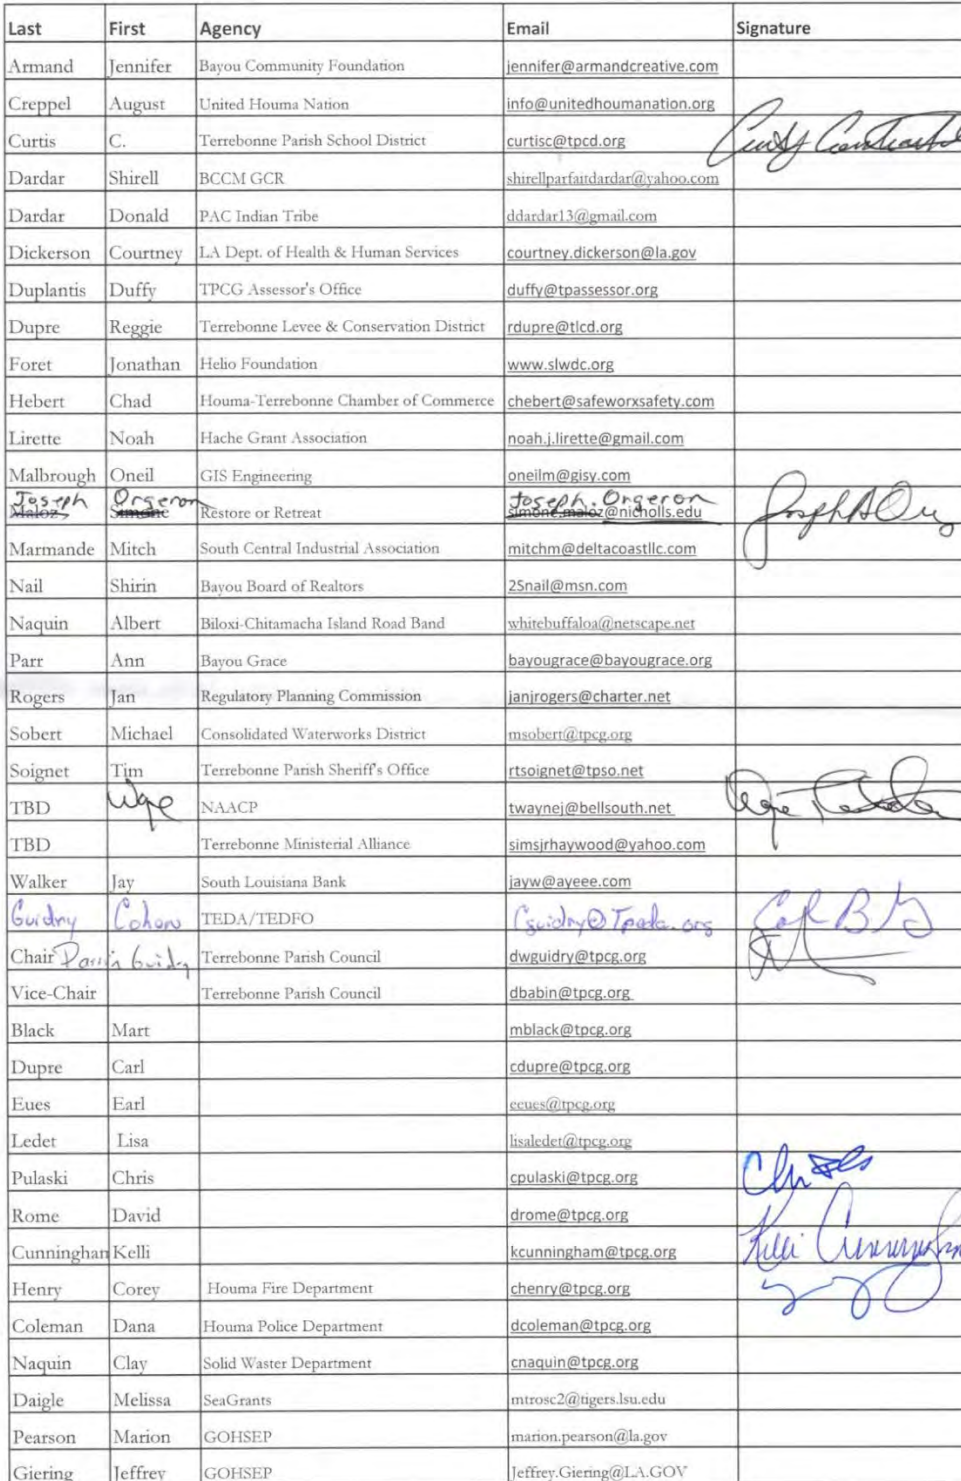 Last First Agency Email Signature
Armand Jennifer Bayou Community Foundation jennifer@armandcreative.com
Creppel August United Houma Nation info@unitedhoumanation.org
Curtis C. Terrebonne Parish School District curtisc@tpcd.org
Dardar Shirell BCCM GCR shirellparfaitdardar@yahoo.com
Dardar Donald PAC Indian Tribe ddardar13@gmail.com
Dickerson Courtney LA Dept. of Health & Human Services courtney.dickerson@la.gov
Duplantis Duffy TPCG Assessor's Office duffy@tpassessor.org
Dupre Reggie Terrebonne Levee & Conservation District rdupre@tlcd.org
Foret Jonathan Helio Foundation www.slwdc.org
Hebert Chad Houma-Terrebonne Chamber of Commerce chebert@safeworxsafety.com
Lirette Noah Hache Grant Association noah.j.lirette@gmail.com
Malbrough Oneil GIS Engineering oneilm@gisy.com
Joseph Orgeron Joseph.Orgeron
Maloz Simone Restore or Retreat simone.maloz@nicholls.edu
Marmande Mitch South Central Industrial Association mitchm@deltacoastllc.com
Nail Shirin Bayou Board of Realtors 2Snail@msn.com
Naquin Albert Biloxi-Chitamacha Island Road Band whitebuffaloa@netscape.net
Parr Ann Bayou Grace bayougrace@bayougrace.org
Rogers Jan Regulatory Planning Commission janjrogers@charter.net
Sobert Michael Consolidated Waterworks District msobert@tpcg.org
Soignet Tim Terrebonne Parish Sheriff's Office rtsoignet@tpso.net
TBD NAACP twaynej@bellsouth.net
TBD Terrebonne Ministerial Alliance simsjrhaywood@yahoo.com
Walker Jay South Louisiana Bank jayw@ayeee.com
Guidry Cohen TEDA/TEDFO Cguidry@Tpeda.org
Chair Darrin Guidry Terrebonne Parish Council dwguidry@tpcg.org
Vice-Chair Terrebonne Parish Council dbabin@tpcg.org
Black Mart mblack@tpcg.org
Dupre Carl cdupre@tpcg.org
Eues Earl eeues@tpcg.org
Ledet Lisa lisaledet@tpcg.org
Pulaski Chris cpulaski@tpcg.org
Rome David drome@tpcg.org
Cunninghan Kelli kcunningham@tpcg.org Kelli Cunningham
Henry Corey Houma Fire Department chenry@tpcg.org
Coleman Dana Houma Police Department dcoleman@tpcg.org
Naquin Clay Solid Waster Department cnaquin@tpcg.org
Daigle Melissa SeaGrants mtrosc2@tigers.lsu.edu
Pearson Marion GOHSEP marion.pearson@la.gov
Giering Jeffrey GOHSEP Jeffrey.Giering@LA.GOV